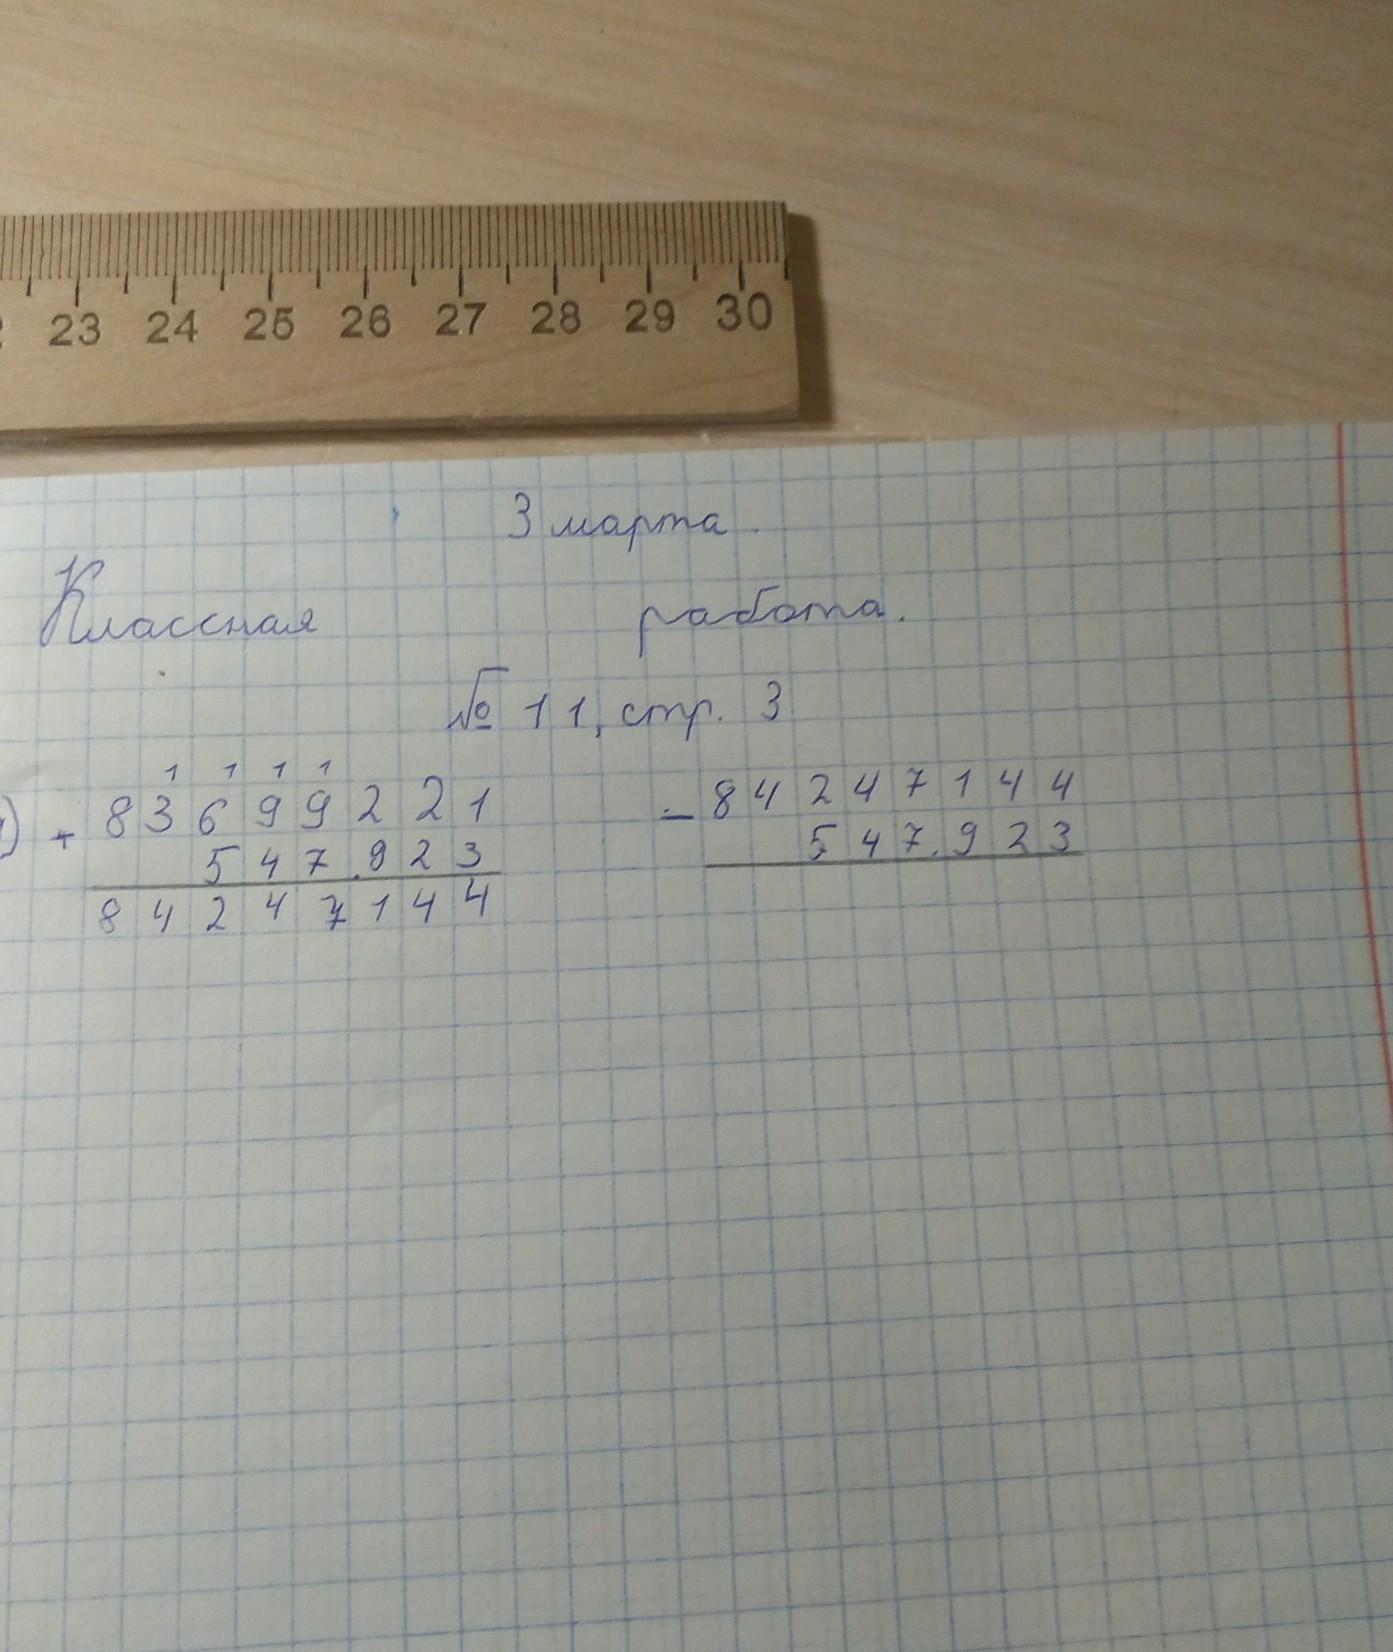 23 24 25 26 27 28 29 30
3 марта.
Классная работа.
№ 11, стр. 3
1 1 1 1
+ 83699221
547.923
84247144
- 84247144
547.923